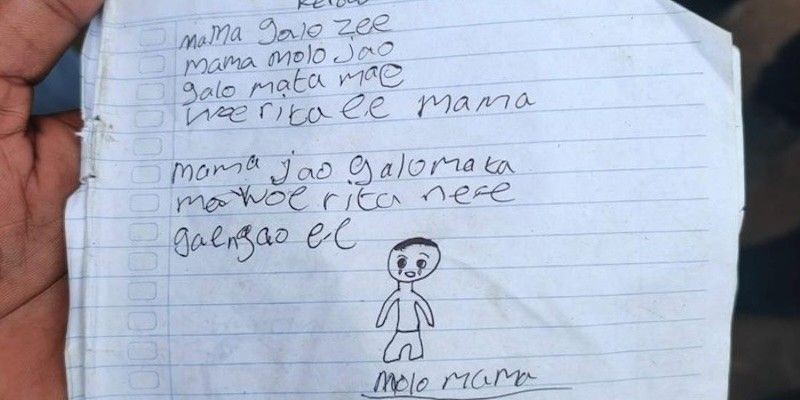 mama galo zee
mama molo jao
galo mata mae
woe rita ee mama
mama jao galo maka
mae woe rita ne'e
gaengao ee
molo mama